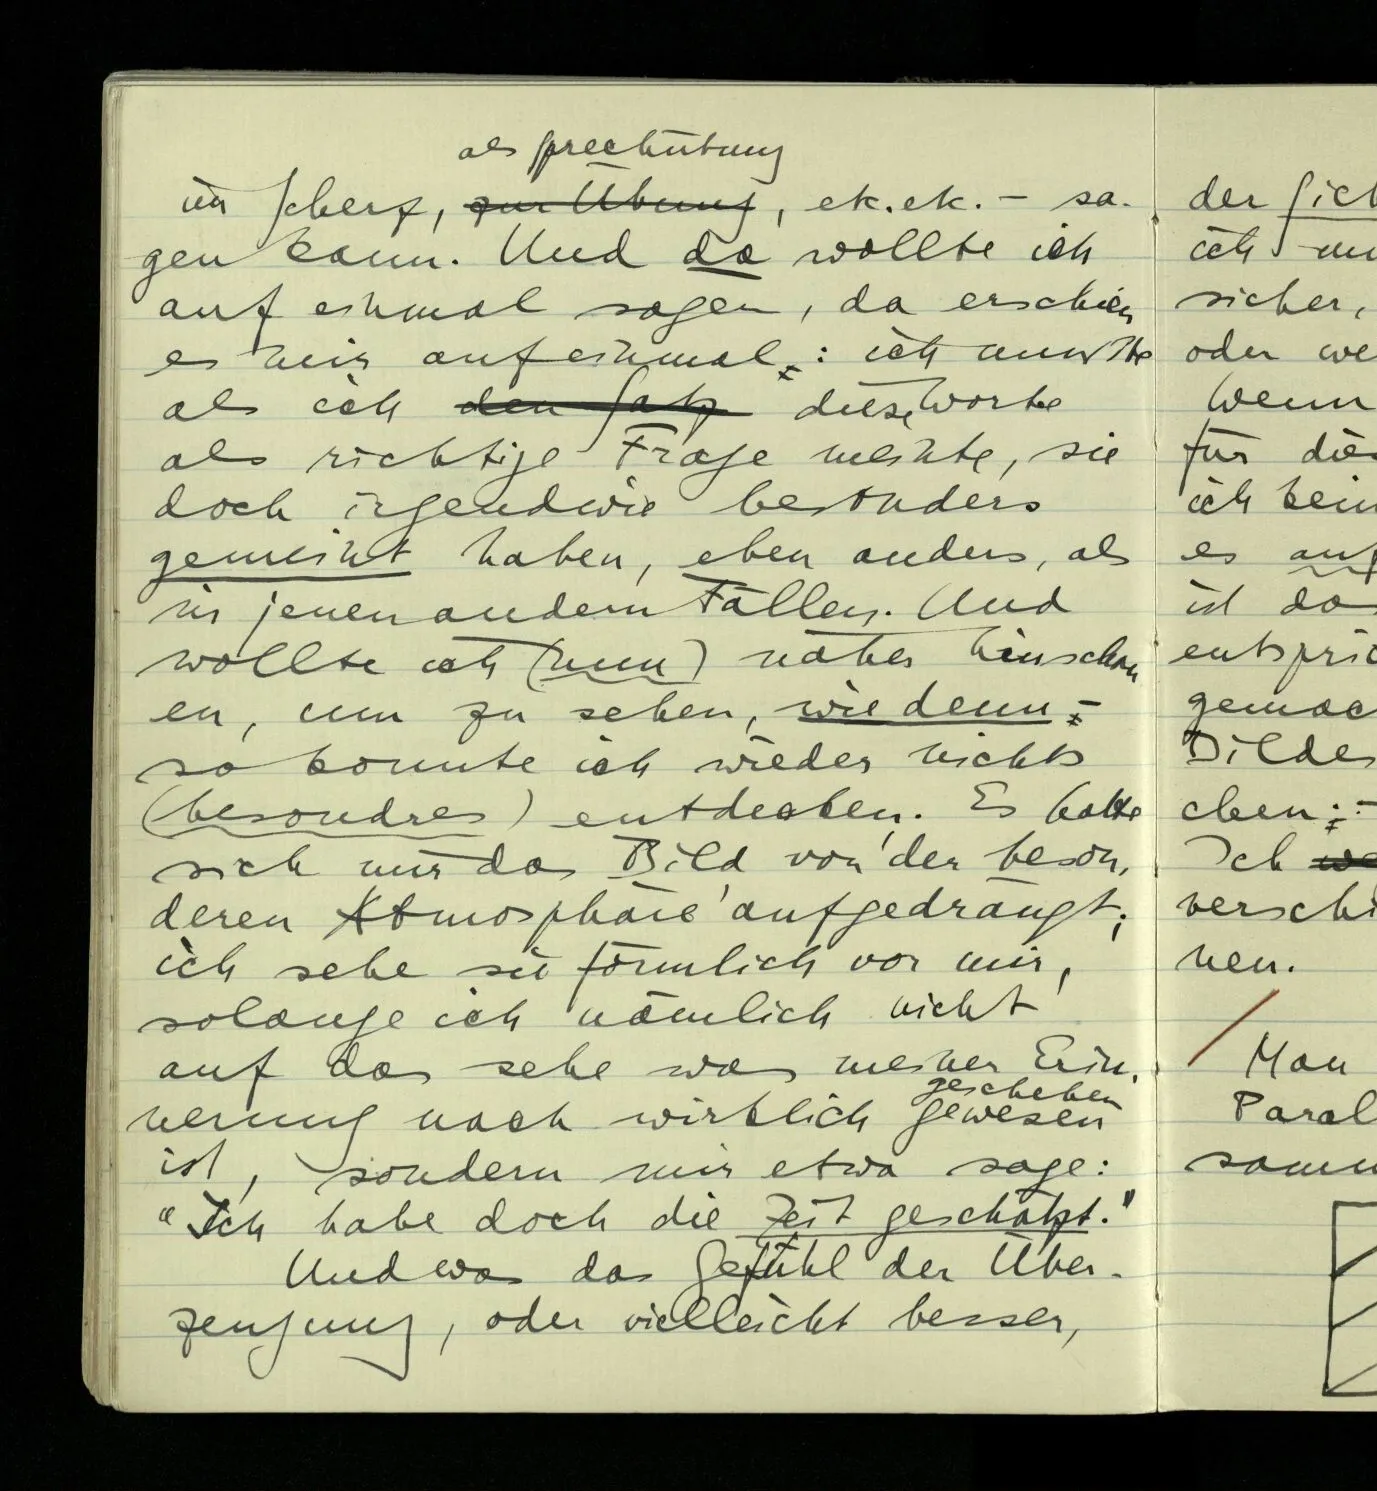 als Sprechübung
im Scherz, zur Übung, etc. etc. – sa-
gen kann. Und da wollte ich
auf einmal sagen, da erschien
es mir auf einmal,: ich müßte
als ich den Satz diese Worte
als richtige Frage meinte, sie
doch irgendwie besonders
gemeint haben, eben anders, als
in jenen andern Fällen. Und
wollte ich (nun) näher hinschau
en, um zu sehen, wie denn,–
so konnte ich wieder nichts
(besondres) entdecken. Es hatte
sich mir das Bild von 'der beson,
deren Atmosphäre' aufgedrängt;
ich sehe sie förmlich vor mir,
solange ich nämlich nicht
auf das sehe was meiner Erin,
geschehen
nerung nach wirklich gewesen
ist, sondern mir etwa sage:
"Ich habe doch die Zeit geschätzt."
Und was das Gefühl der Über-
zeugung, oder vielleicht besser,
der
ich
sicher,
oder
Wenn
für
ich
es
ist
chen;–
Ich
nen.
Man